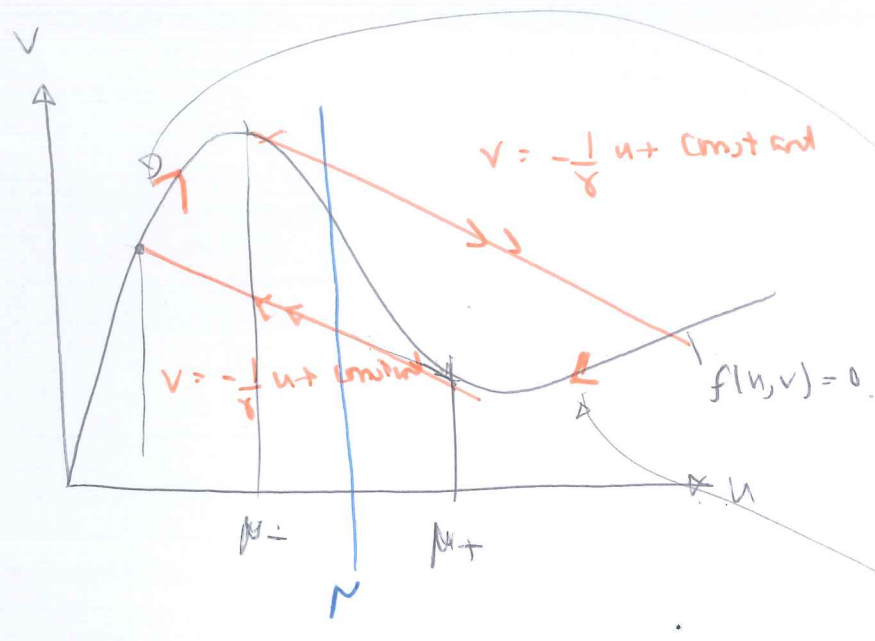 V
V = -1/γ u + constant
V = -1/γ u + constant
f(u,v) = 0
u
μ-
μ+
μ